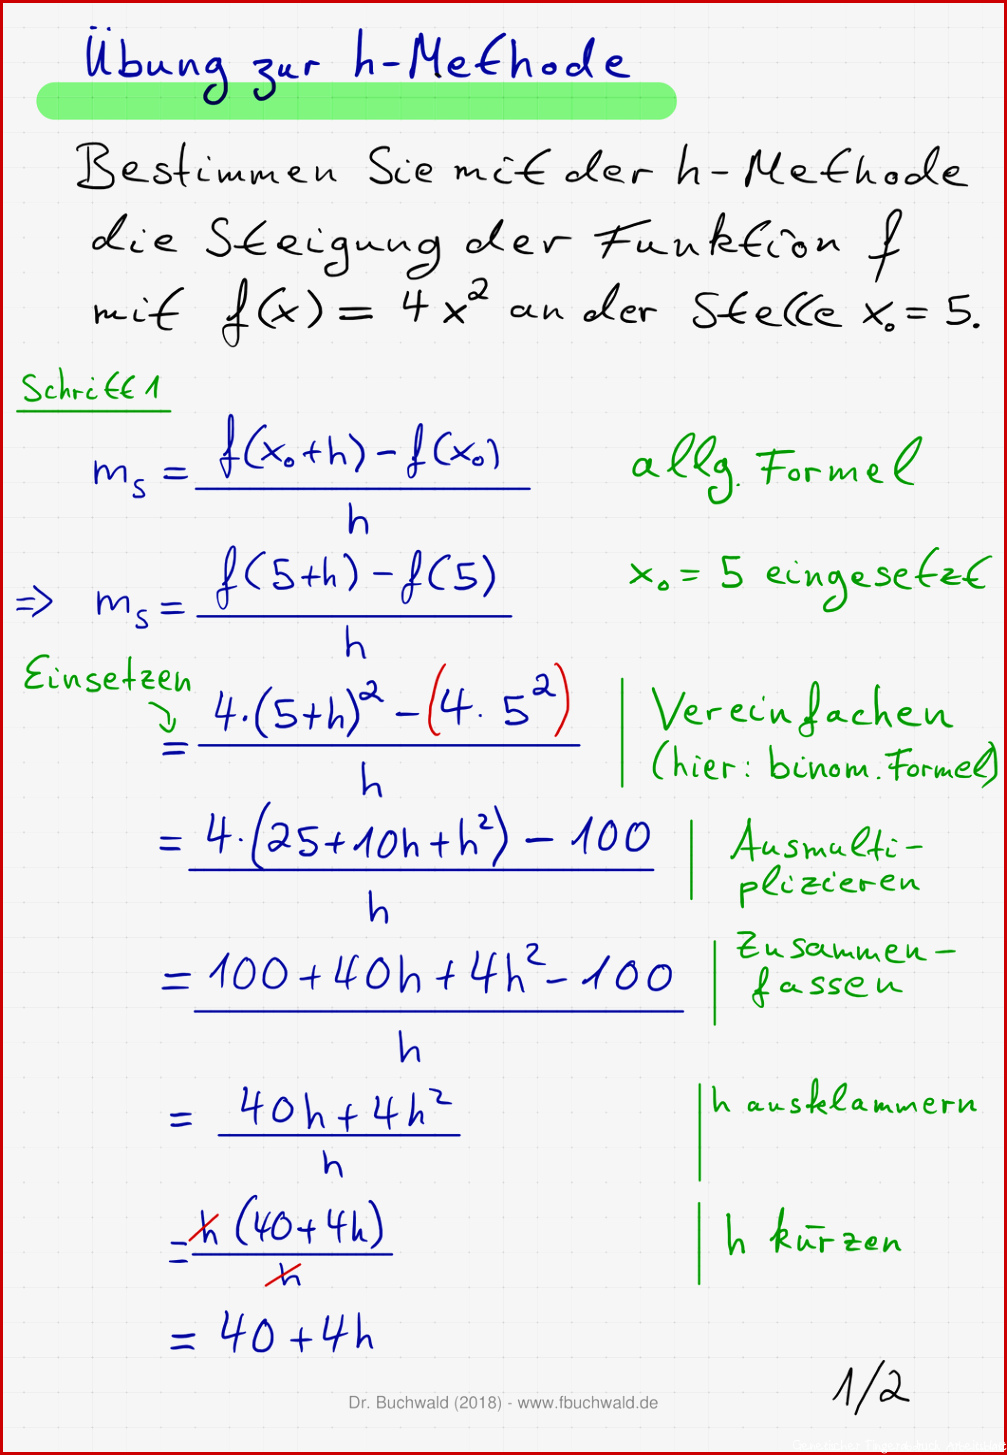 Übung zur h-Methode
Bestimmen Sie mit der h-Methode
die Steigung der Funktion f
mit f(x) = 4x² an der Stelle x₀ = 5.
Schritt 1
mₛ = (f(x₀+h) - f(x₀)) / h allg. Formel
⇒ mₛ = (f(5+h) - f(5)) / h x₀ = 5 eingesetzt
Einsetzen
= (4·(5+h)² - (4·5²)) / h | Vereinfachen
(hier: binom. Formel)
= (4·(25+10h+h²) - 100) / h | Ausmulti-
plizieren
= (100+40h+4h²-100) / h | Zusammen-
fassen
= (40h+4h²) / h | h ausklammern
= h(40+4h) / h | h kürzen
= 40+4h
1/2
Dr. Buchwald (2018) - www.fbuchwald.de